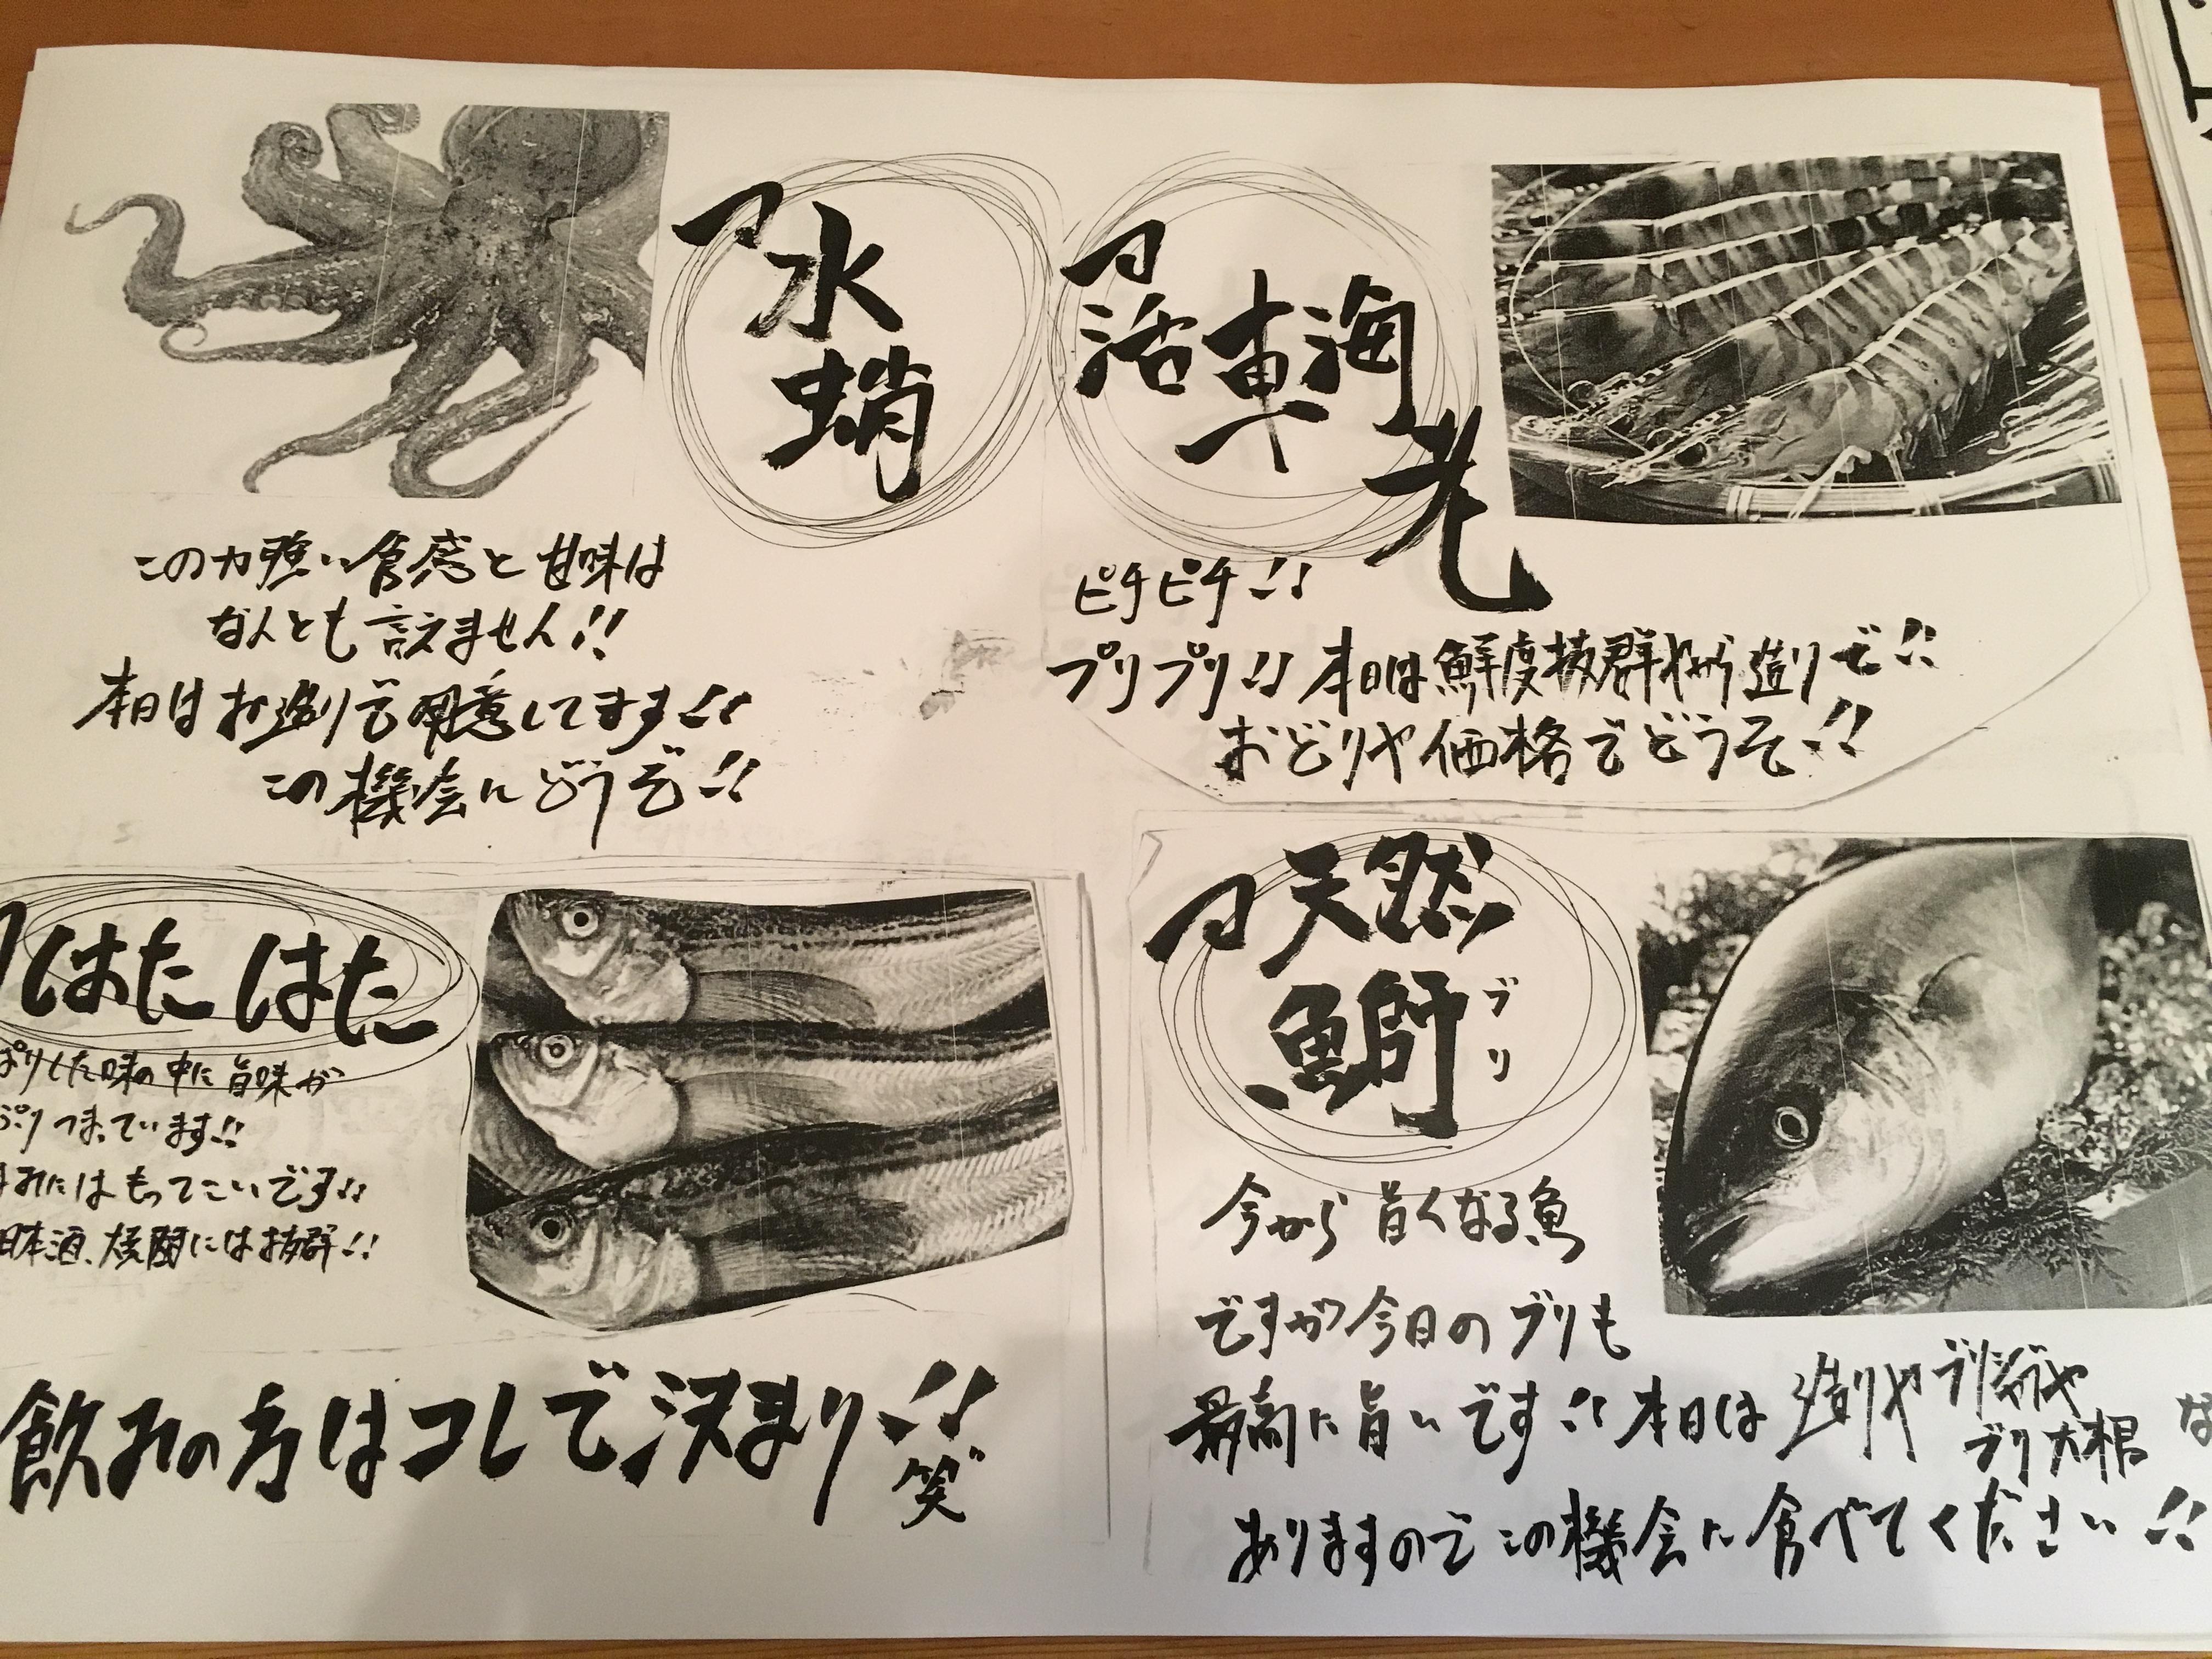 水
蛸
この力強い食感と甘味は
なんとも言えません!!
本日はお造りで用意してます!!
この機会にどうぞ!!
活車海
老
ピチピチ!!
プリプリ!! 本日は鮮度抜群やから造りで!!
おどりや価格でどうぞ!!
はたはた
ぱりした味の中に旨味が
ぷりつまっています!!
まみにはもってこいです!!
日本酒、焼酎には抜群!!
飲みの方はコレで決まり!!
笑
天然
鰤
ブリ
今から旨くなる魚
ですが今日のブリも
最高に旨いです!! 本日は造りや
ブリ大根 な
ありますのでこの機会に食べてください!!